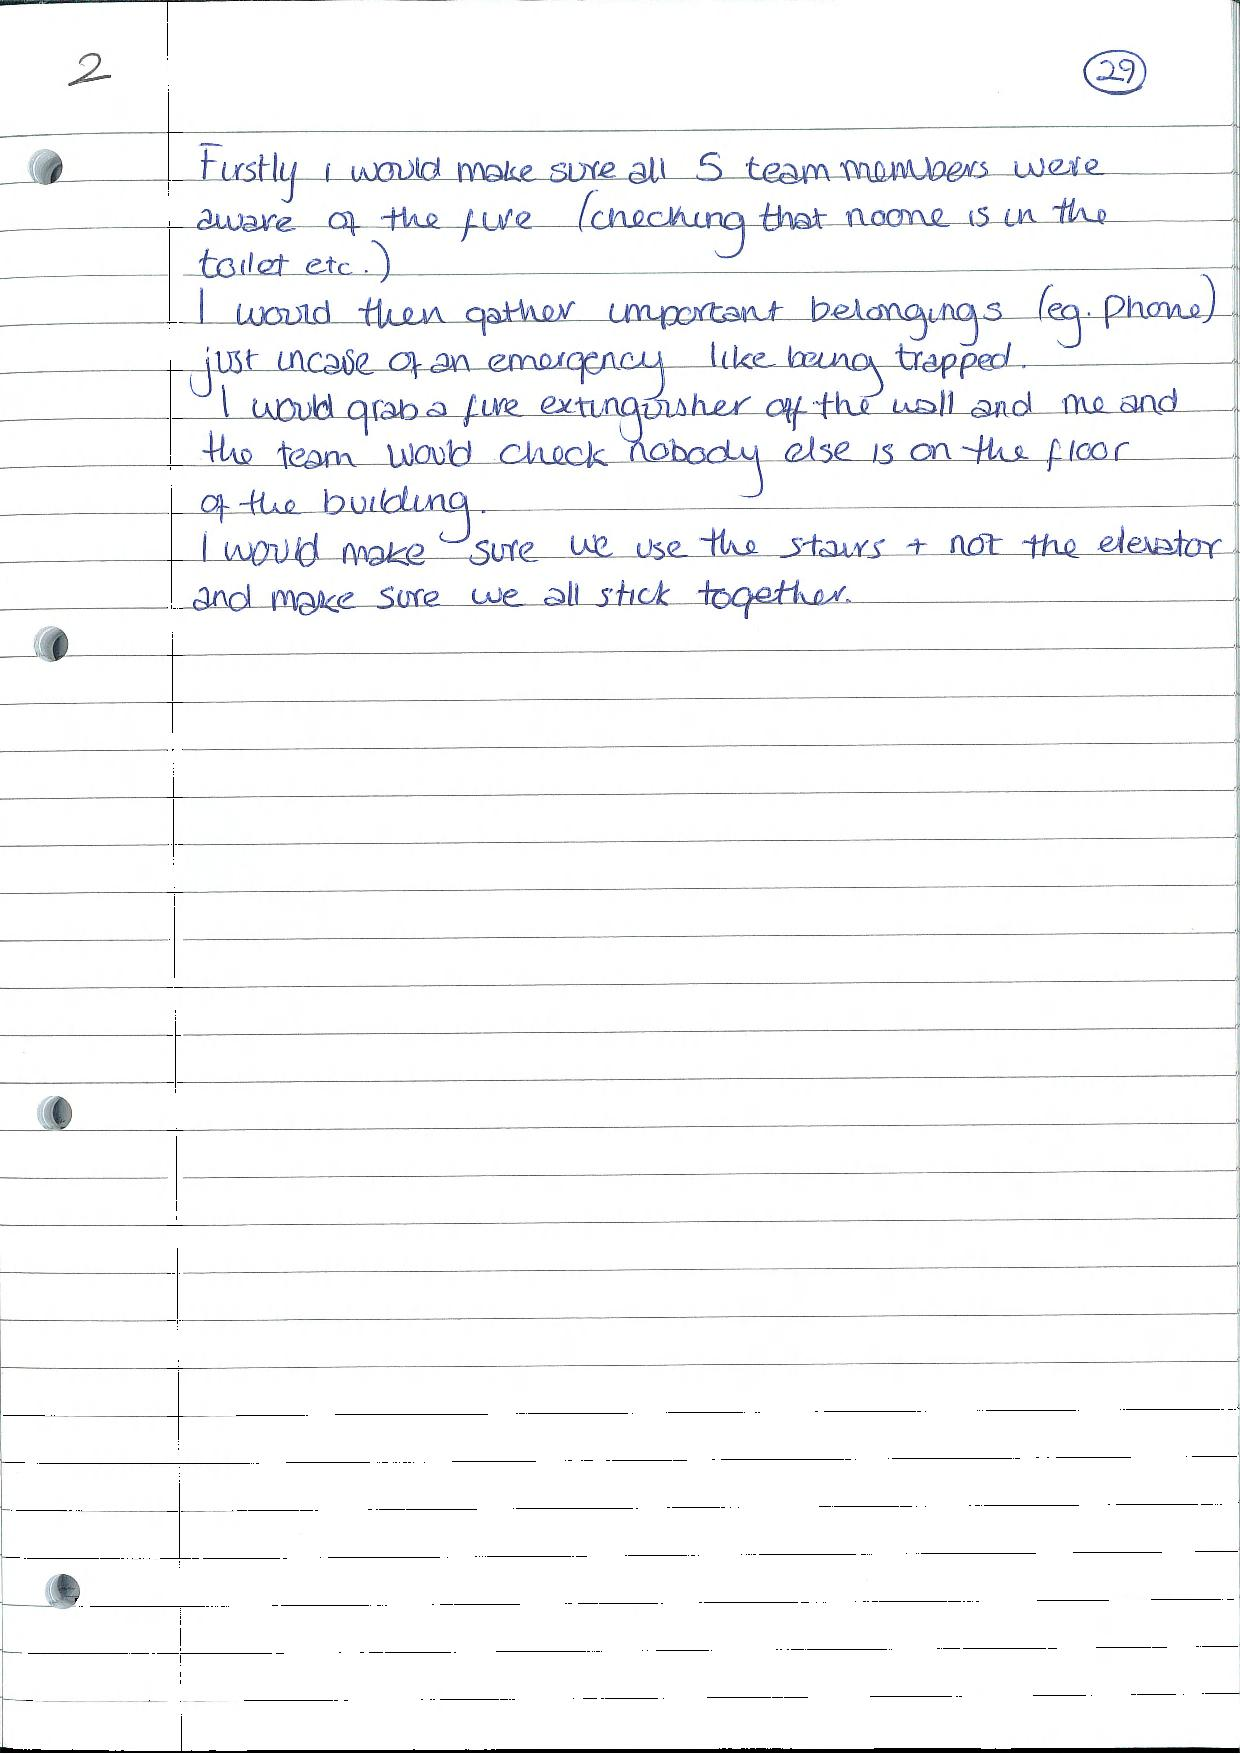 2
29
Firstly i would make sure all 5 team members were
aware of the fire (checking that noone is in the
toilet etc.)
I would then gather important belongings (eg. Phone)
just incase of an emergency like being trapped.
I would grab a fire extinguisher off the wall and me and
the team would check nobody else is on the floor
of the building.
I would make sure we use the stairs + not the elevator
and make sure we all stick together.